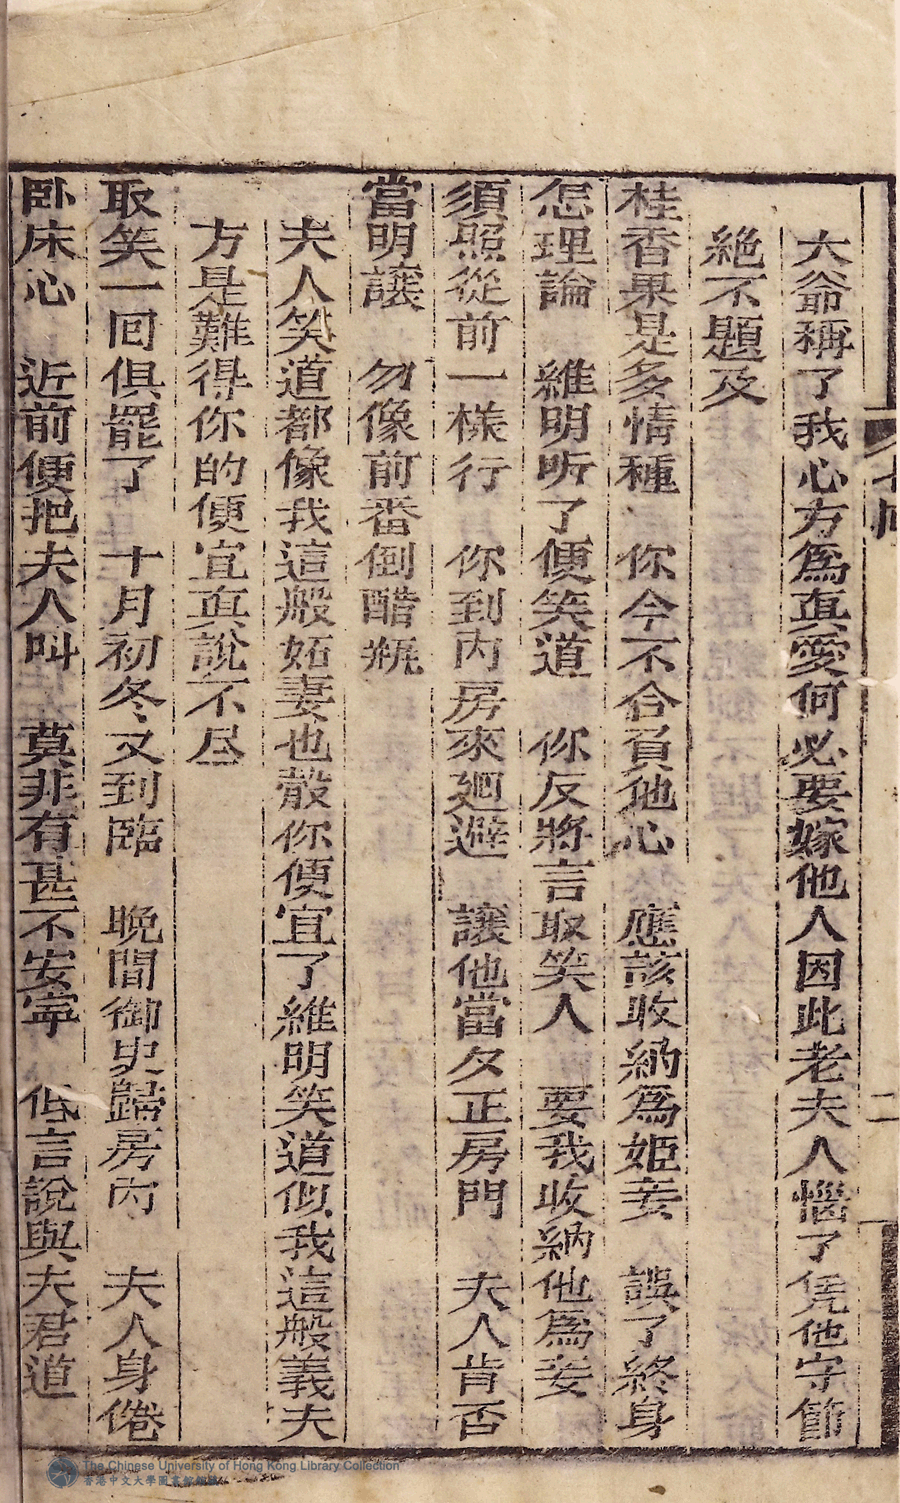 大爺稱了我心方為真愛何必要嫁他人因此老夫人惱了凭他守節
絶不題及
桂香果是多情種　你今不合負他心　應該收納為姫妾　誤了終身
怎理論　維明听了便笑道　你反將言取笑人　要我收納他為妾
須照從前一様行　你到内房來廻避　讓他當夕正房門　夫人肯否
當明讓　勿像前番倒醋瓶
夫人笑道都像我這般妬妻也彀你便宜了維明笑道似我這般義夫
方是難得你的便宜真說不尽
取笑一回俱罷了　十月初冬又到臨　晚間御史歸房内　夫人身倦
卧床心　近前便把夫人叫　莫非有甚不安寜　低言說與夫君道
二
The Chinese University of Hong Kong Library Collection
香港中文大學圖書館館藏